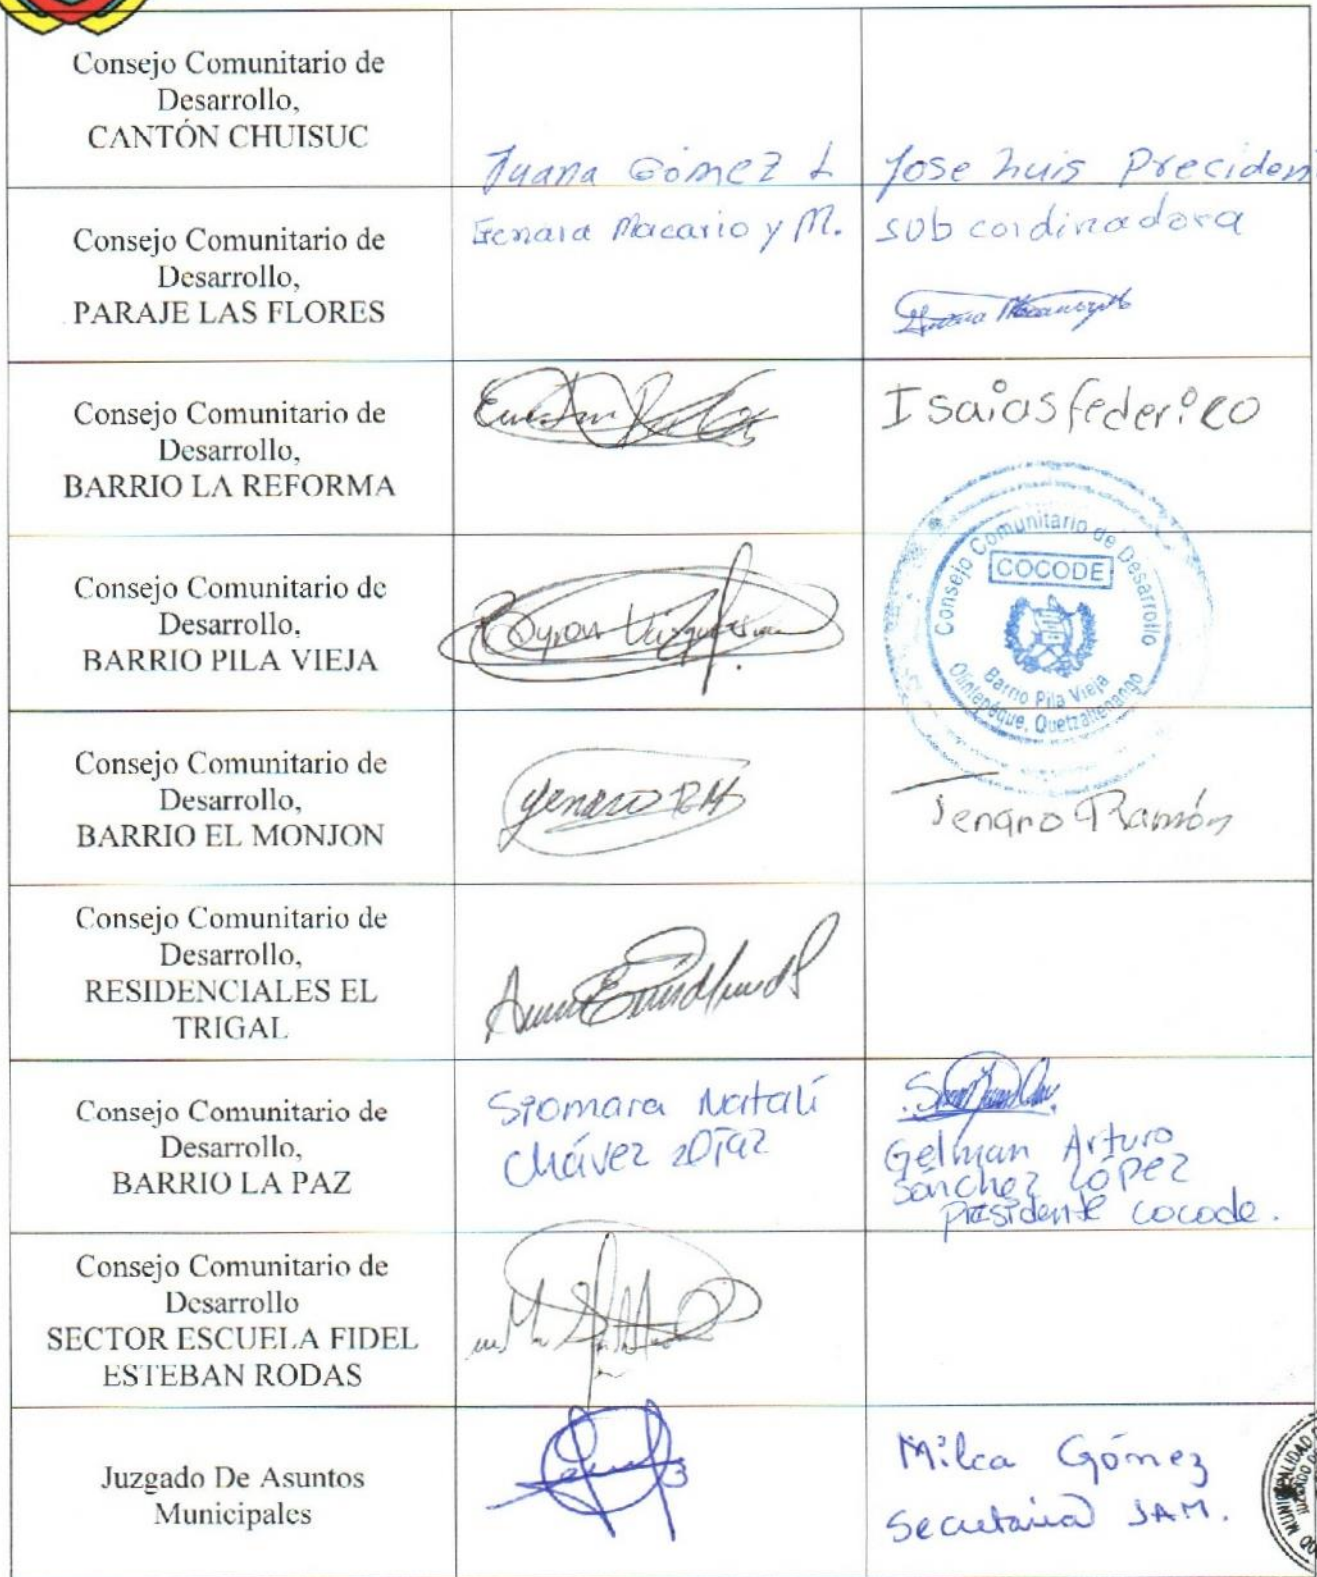 Consejo Comunitario de
Desarrollo,
CANTÓN CHUISUC
Juana Gómez L
Jose Luis Presiden
Consejo Comunitario de
Desarrollo,
PARAJE LAS FLORES
Genara Macario y M.
sub cordinadora
Consejo Comunitario de
Desarrollo,
BARRIO LA REFORMA
Isaias federico
Consejo Comunitario de
Desarrollo,
BARRIO PILA VIEJA
Byron
Consejo Comunitario de Desarrollo
COCODE
Barrio Pila Vieja
Olintepeque, Quetzaltenango
Consejo Comunitario de
Desarrollo,
BARRIO EL MONJON
Jenaro Ramón
Consejo Comunitario de
Desarrollo,
RESIDENCIALES EL
TRIGAL
Consejo Comunitario de
Desarrollo,
BARRIO LA PAZ
Siomara Natalí
Chávez Díaz
Gelman Arturo
Sánchez López
Presidente cocode.
Consejo Comunitario de
Desarrollo
SECTOR ESCUELA FIDEL
ESTEBAN RODAS
Juzgado De Asuntos
Municipales
Milca Gómez
Secretaria JAM.